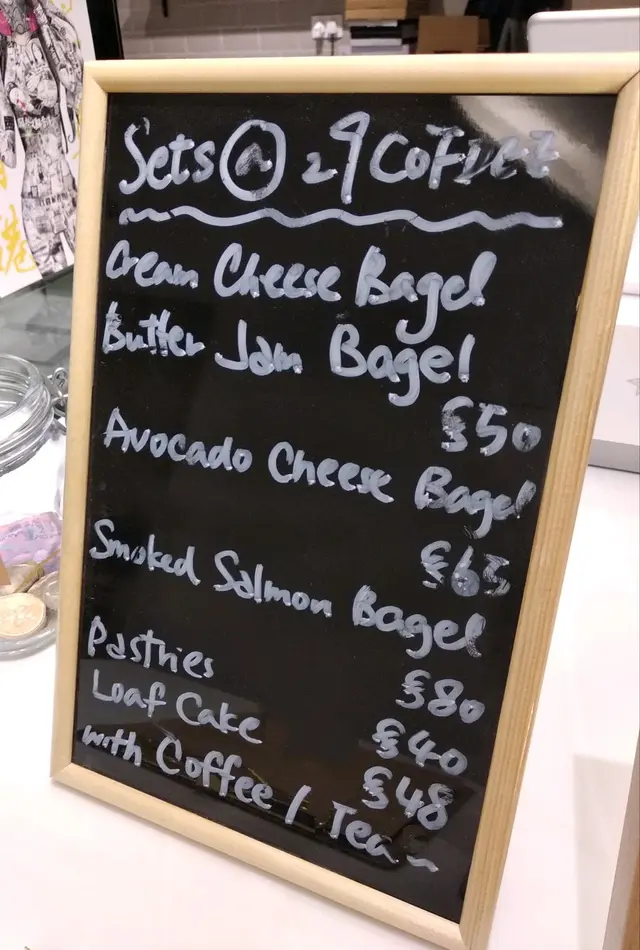 Sets @ 29 Coffeez
Cream Cheese Bagel
Butter Jam Bagel
$50
Avocado Cheese Bagel
$65
Smoked Salmon Bagel
$80
Pastries
$40
Loaf Cake
$48
with Coffee / Tea~